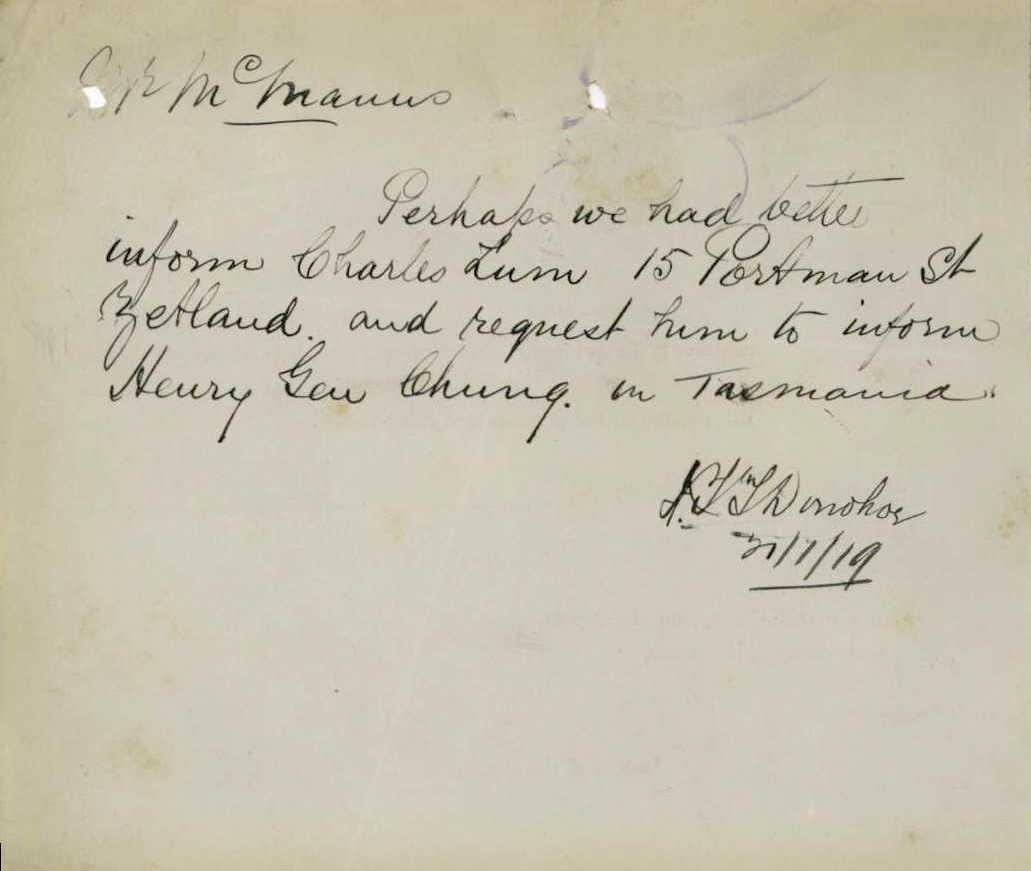 McManus
Perhaps we had better
inform Charles Lum 15 Portman St
Zetland. and request him to inform
Henry Gen Chung. in Tasmania.
Donohoe
/19